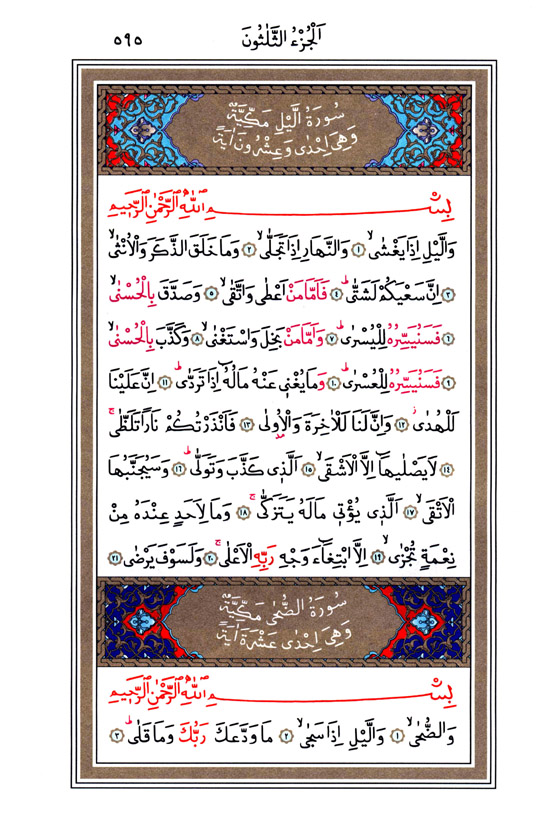 اَلْجُزْءُ الثَّلٰثُونَ ٥٩٥
سُورَةُ الَّيْلِ مَكِّيَّةٌ
وَهِىَ اِحْدٰى وَعِشْرُونَ اٰيَةً
بِسْــــــــمِ اللّٰهِ الرَّحْمٰنِ الرَّحِيمِ
وَالَّيْلِ اِذَا يَغْشٰىۙ ﴿١﴾ وَالنَّهَارِ اِذَا تَجَلّٰىۙ ﴿٢﴾ وَمَا خَلَقَ الذَّكَرَ وَالْاُنْثٰىۙ
﴿٣﴾ اِنَّ سَعْيَكُمْ لَشَتّٰىۜ ﴿٤﴾ فَاَمَّا مَنْ اَعْطٰى وَاتَّقٰىۙ ﴿٥﴾ وَصَدَّقَ بِالْحُسْنٰىۙ
﴿٦﴾ فَسَنُيَسِّرُهُ لِلْيُسْرٰىۜ ﴿٧﴾ وَاَمَّا مَنْ بَخِلَ وَاسْتَغْنٰىۙ ﴿٨﴾ وَكَذَّبَ بِالْحُسْنٰىۙ
﴿٩﴾ فَسَنُيَسِّرُهُ لِلْعُسْرٰىۜ ﴿١٠﴾ وَمَا يُغْنٖى عَنْهُ مَالُهُٓ اِذَا تَرَدّٰىۜ ﴿١١﴾ اِنَّ عَلَيْنَا
لَلْهُدٰىۘ ﴿١٢﴾ وَاِنَّ لَنَا لَلْاٰخِرَةَ وَالْاُولٰى ﴿١٣﴾ فَاَنْذَرْتُكُمْ نَارًا تَلَظّٰىۚ
﴿١٤﴾ لَا يَصْلٰيهَٓا اِلَّا الْاَشْقٰىۙ ﴿١٥﴾ اَلَّذٖى كَذَّبَ وَتَوَلّٰىۜ ﴿١٦﴾ وَسَيُجَنَّبُهَا
الْاَتْقٰىۙ ﴿١٧﴾ اَلَّذٖى يُؤْتٖى مَالَهُ يَتَزَكّٰىۚ ﴿١٨﴾ وَمَا لِاَحَدٍ عِنْدَهُ مِنْ
نِعْمَةٍ تُجْزٰىۙ ﴿١٩﴾ اِلَّا ابْتِغَٓاءَ وَجْهِ رَبِّهِ الْاَعْلٰىۚ ﴿٢٠﴾ وَلَسَوْفَ يَرْضٰى ﴿٢١﴾
سُورَةُ الضُّحٰى مَكِّيَّةٌ
وَهِىَ اِحْدٰى عَشْرَةَ اٰيَةً
بِسْــــــــمِ اللّٰهِ الرَّحْمٰنِ الرَّحِيمِ
وَالضُّحٰىۙ ﴿١﴾ وَالَّيْلِ اِذَا سَجٰىۙ ﴿٢﴾ مَا وَدَّعَكَ رَبُّكَ وَمَا قَلٰىۜ ﴿٣﴾